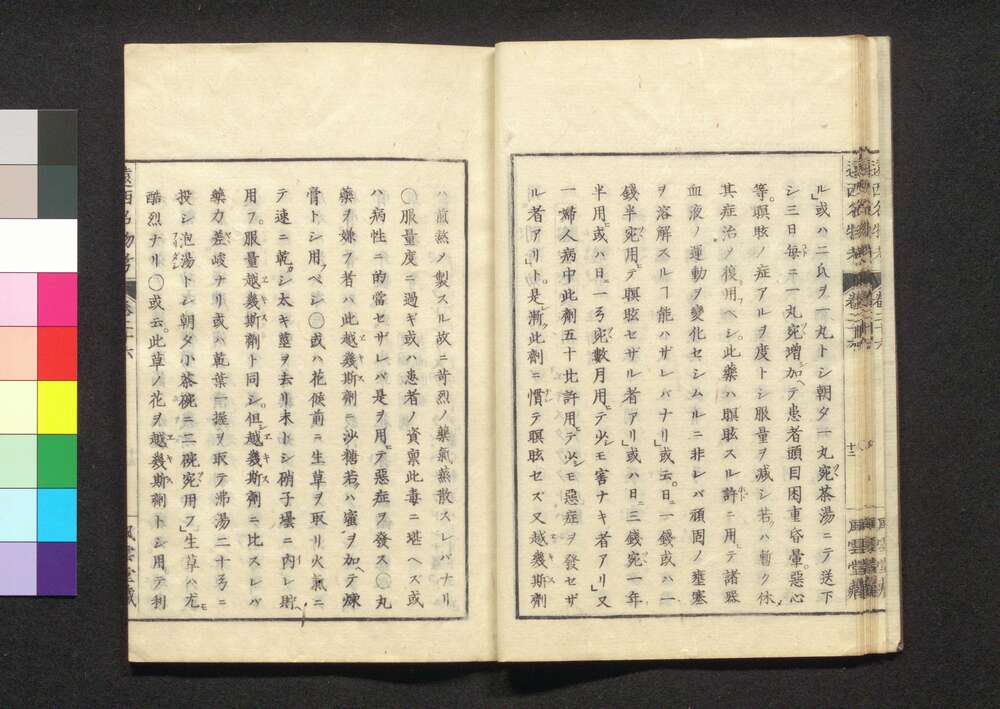 ル」或ハ二氏ヲ一丸トシ朝夕一丸宛茶湯ニテ送下
シ三日毎ニ一丸宛増加テ患者頭目困重昏暈惡心
等瞑眩ノ症アルヲ度トシ服量ヲ減シ若クハ暫ク休
其症治ヲ復用ベシ此藥ハ瞑眩スル許ニ用テ諸器
血液ノ運動ヲ變化セシムルニ非レバ頑固ノ壅塞
ヲ溶解スルヿ能ハザレバナリ」或云日ニ一錢或ハ一
錢半宛用テ瞑眩セザル者アリ」或ハ日ニ三錢宛一年
半用或ハ日ニ一弓宛數月用テ少モ害ナキ者アリ」又
一婦人病中此劑五十比許用テ少シモ惡症ヲ發セザ
ル者アリト是漸此劑ニ慣テ瞑眩セズ又越幾斯劑
ハ煎熬ノ製スル故ニ苛烈ノ藥氣蒸散スレバナリ
〇服量度ニ過ギ或ハ患者ノ資禀此毒ニ堪ヘズ或
ハ病性ニ的當セザレバ是ヲ用テ惡症ヲ發ス〇丸
藥ヲ嫌フ者ハ此越幾斯劑ニ沙糖若ハ蜜ヲ加ヘテ煉
膏トシ用フベシ〇或ハ花候前ニ生草ヲ取リ火氣ニ
テ速ニ乾シ太キ莖ヲ去リ末トシ硝子壜ニ內レ貯
用フ服量越幾斯劑ト同シ但越幾斯劑ニ比スレバ
藥力差峻ナリ或ハ乾葉一握ヲ取テ沸湯二十弓ニ
投シ泡湯トシ朝夕小茶碗ニ二碗宛用フ」生草ハ尤モ
酷烈ナリ〇或云此草ノ花ヲ越幾斯劑トシ用テ利
遠西名物考
卷二十六
風雲堂藏